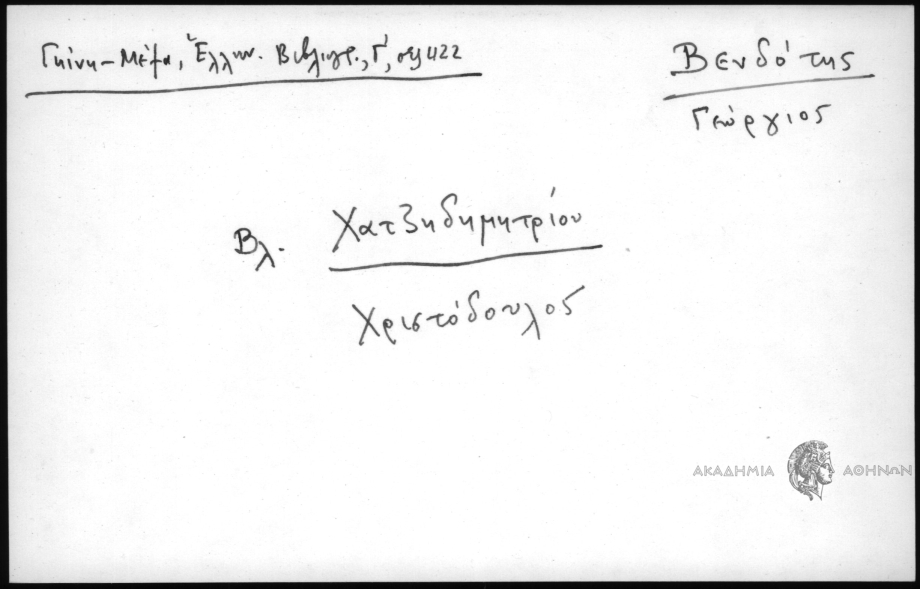 Γκίνη-Μέξα, Ἑλλην. Βιβλιογρ., Γ', σελ 422
Βενδότης
Γεώργιος
Βλ. Χατζηδημητρίου
Χριστόδουλος
ΑΚΑΔΗΜΙΑ ΑΘΗΝΩΝ